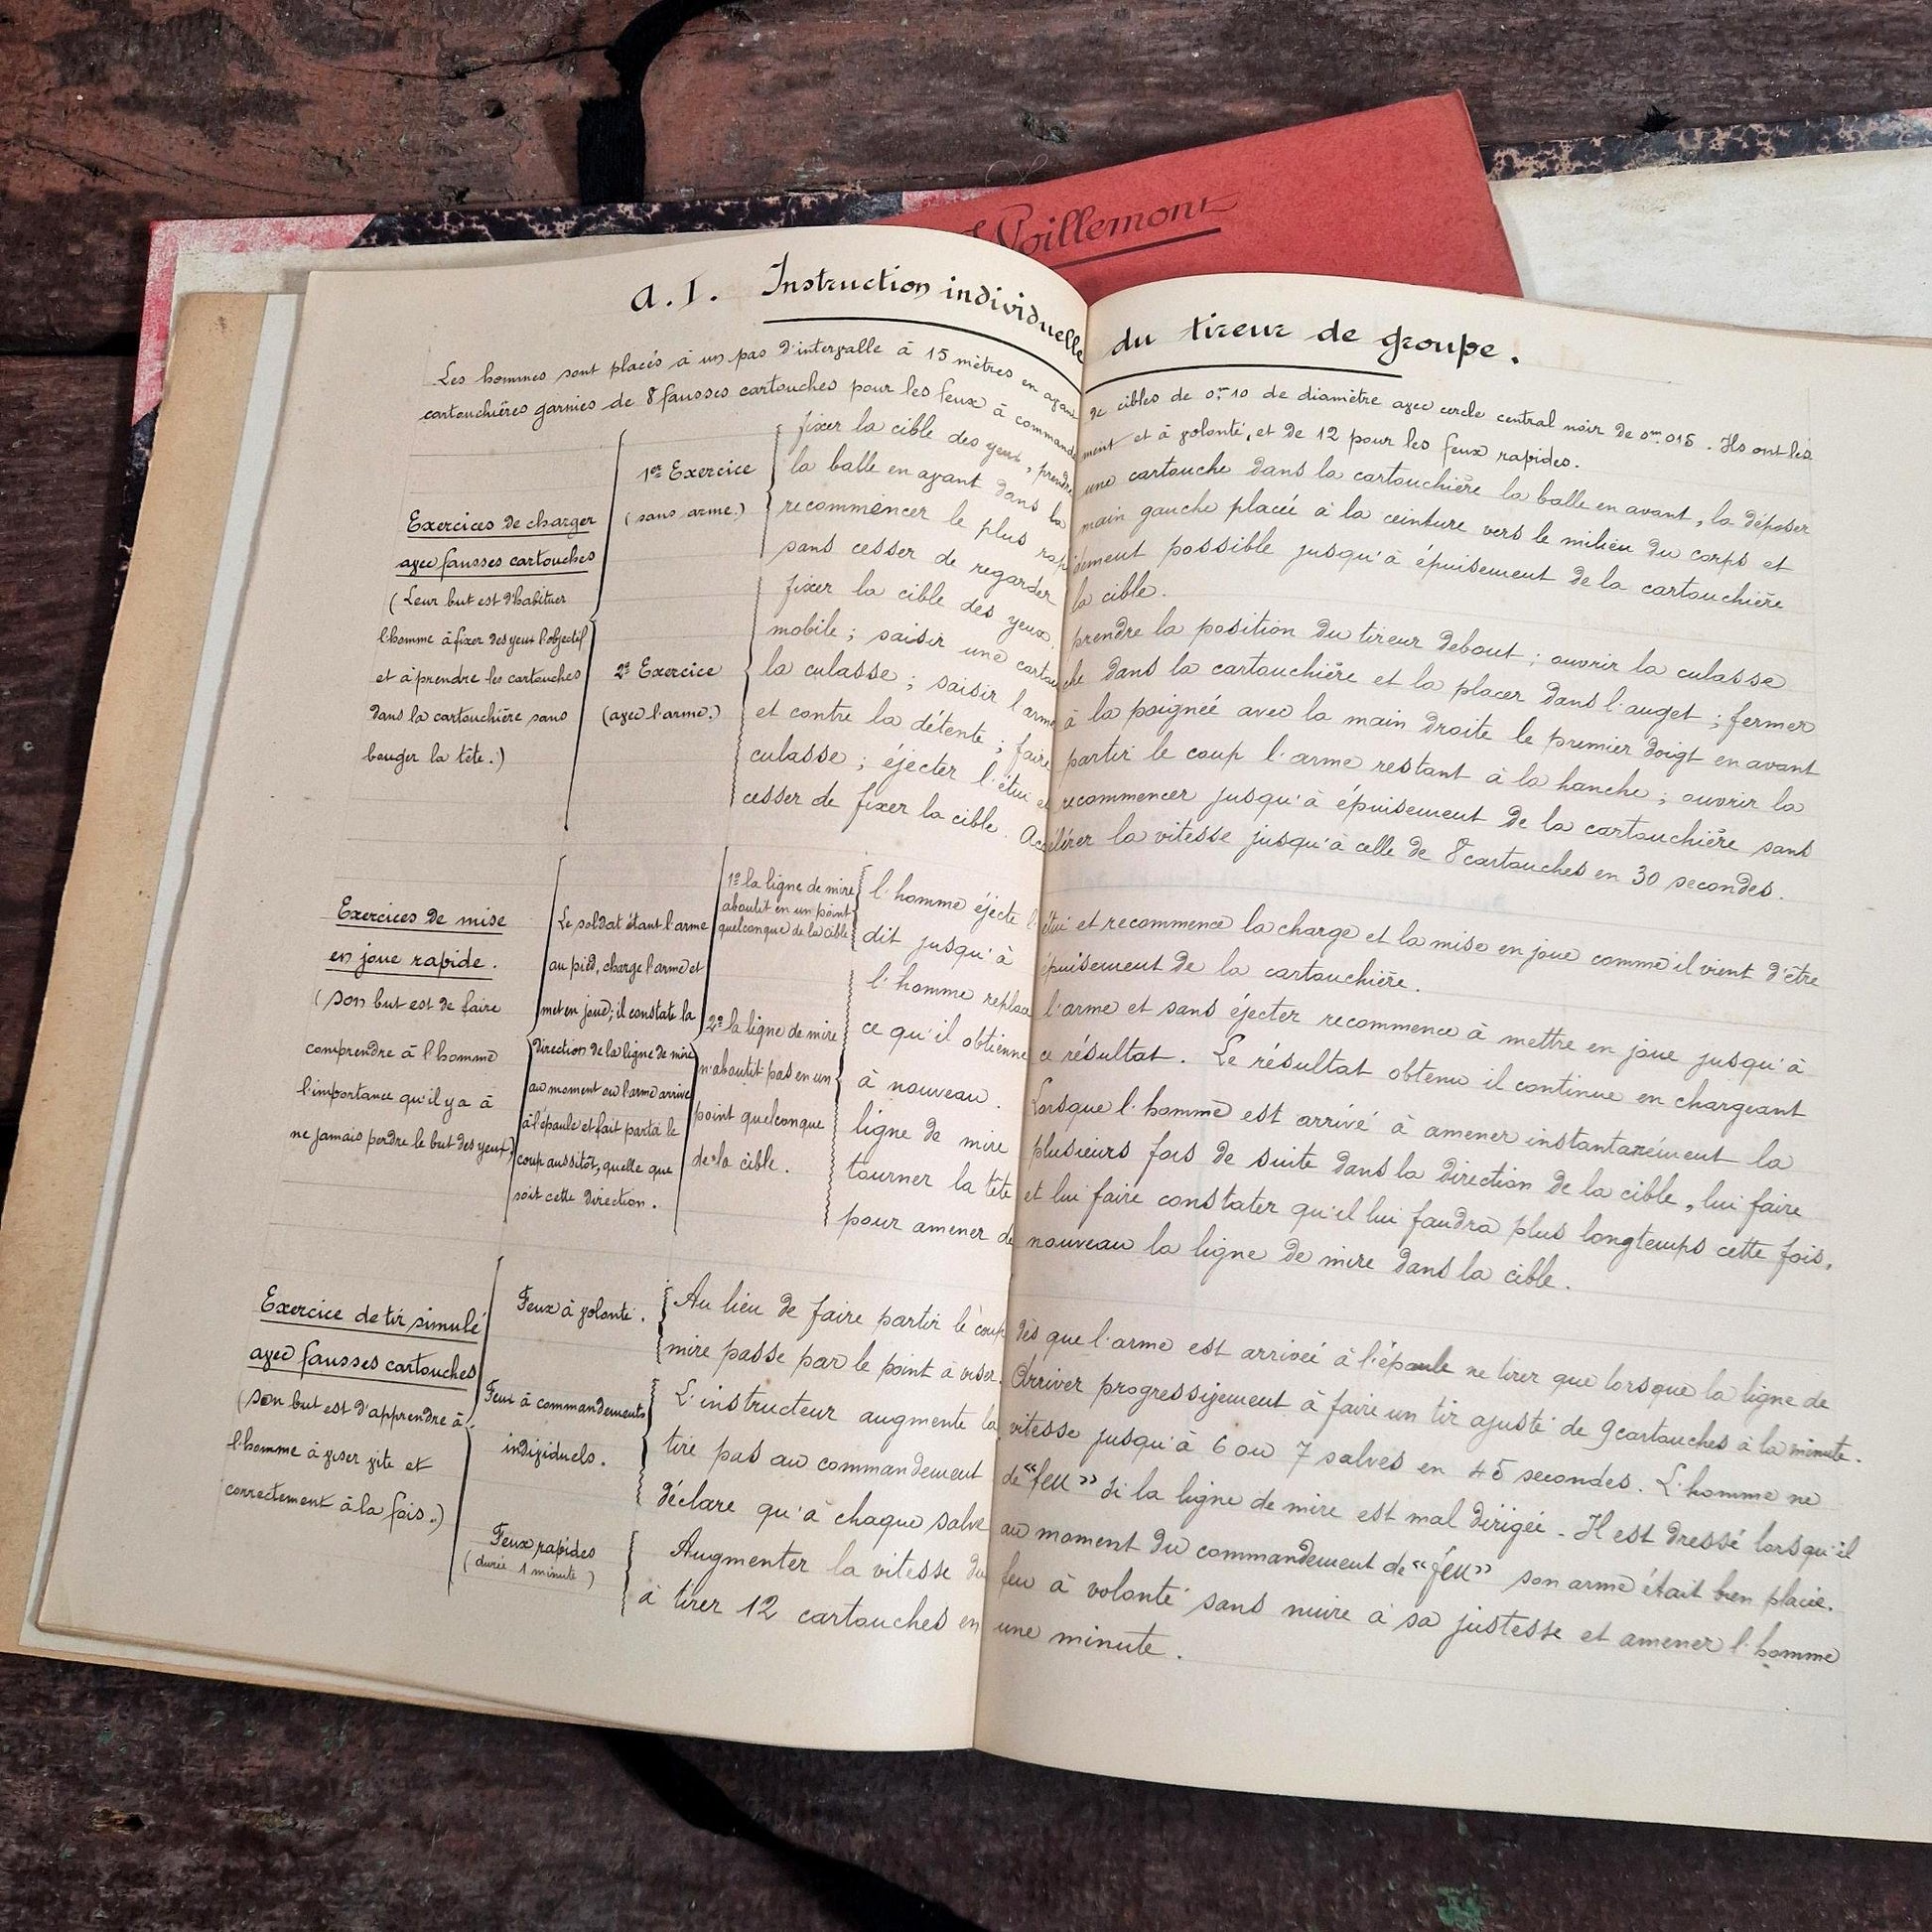 Woillemont
a. I. Instruction individuelle du tireur de groupe.
Les hommes sont placés à un pas d'intervalle à 15 mètres en avant de cibles de 0m10 de diamètre avec cercle central noir de 0m,015. Ils ont les
cartouchières garnies de 8 fausses cartouches pour les feux à commandement et à volonté, et de 12 pour les feux rapides.
Exercices de charger
avec fausses cartouches
(Leur but est d'habituer
l'homme à fixer des yeux l'objectif
et à prendre les cartouches
dans la cartouchière sans
bouger la tête.)
1er Exercice
(sans arme.)
fixer la cible des yeux, prendre une cartouche dans la cartouchière la balle en avant, la déposer
la balle en avant dans la main gauche placée à la ceinture vers le milieu du corps et
recommencer le plus rapidement possible jusqu'à épuisement de la cartouchière
sans cesser de regarder la cible.
2e Exercice
(avec l'arme.)
fixer la cible des yeux, prendre la position du tireur debout; ouvrir la culasse
mobile; saisir une cartouche dans la cartouchière et la placer dans l'auget; fermer
la culasse; saisir l'arme à la poignée avec la main droite le premier doigt en avant
et contre la détente; faire partir le coup l'arme restant à la hanche; ouvrir la
culasse; éjecter l'étui et recommencer jusqu'à épuisement de la cartouchière sans
cesser de fixer la cible. Accélérer la vitesse jusqu'à celle de 8 cartouches en 30 secondes.
Exercices de mise
en joue rapide.
(son but est de faire
comprendre à l'homme
l'importance qu'il y a à
ne jamais perdre le but des yeux)
Le soldat étant l'arme
au pied, charge l'arme et
met en joue; il constate la
direction de la ligne de mire
au moment ou l'arme arrive
à l'épaule et fait partir le
coup aussitôt, quelle que
soit cette direction.
1º la ligne de mire
aboutit en un point
quelconque de la cible
l'homme éjecte l'étui et recommence la charge et la mise en joue comme il vient d'être
dit jusqu'à épuisement de la cartouchière.
2º la ligne de mire
n'aboutit pas en un
point quelconque
de la cible.
l'homme replace l'arme et sans éjecter recommence à mettre en joue jusqu'à
ce qu'il obtienne ce résultat. Le résultat obtenu il continue en chargeant
à nouveau. Lorsque l'homme est arrivé à amener instantanément la
ligne de mire plusieurs fois de suite dans la direction de la cible, lui faire
tourner la tête et lui faire constater qu'il lui faudra plus longtemps cette fois,
pour amener de nouveau la ligne de mire dans la cible.
Exercice de tir simulé
avec fausses cartouches
(son but est d'apprendre à
l'homme à viser vite et
correctement à la fois.)
Feux à volonté.
Au lieu de faire partir le coup dès que l'arme est arrivée à l'épaule ne tirer que lorsque la ligne de
mire passe par le point à viser. Arriver progressivement à faire un tir ajusté de 9 cartouches à la minute.
Feux à commandements
individuels.
L'instructeur augmente la vitesse jusqu'à 6 ou 7 salves en 45 secondes. L'homme ne
tire pas au commandement de "feu" si la ligne de mire est mal dirigée. Il est dressé lorsqu'il
déclare qu'à chaque salve au moment du commandement de "feu" son arme était bien placée.
Feux rapides
(durée 1 minute)
Augmenter la vitesse du feu à volonté sans nuire à sa justesse et amener l'homme
à tirer 12 cartouches en une minute.